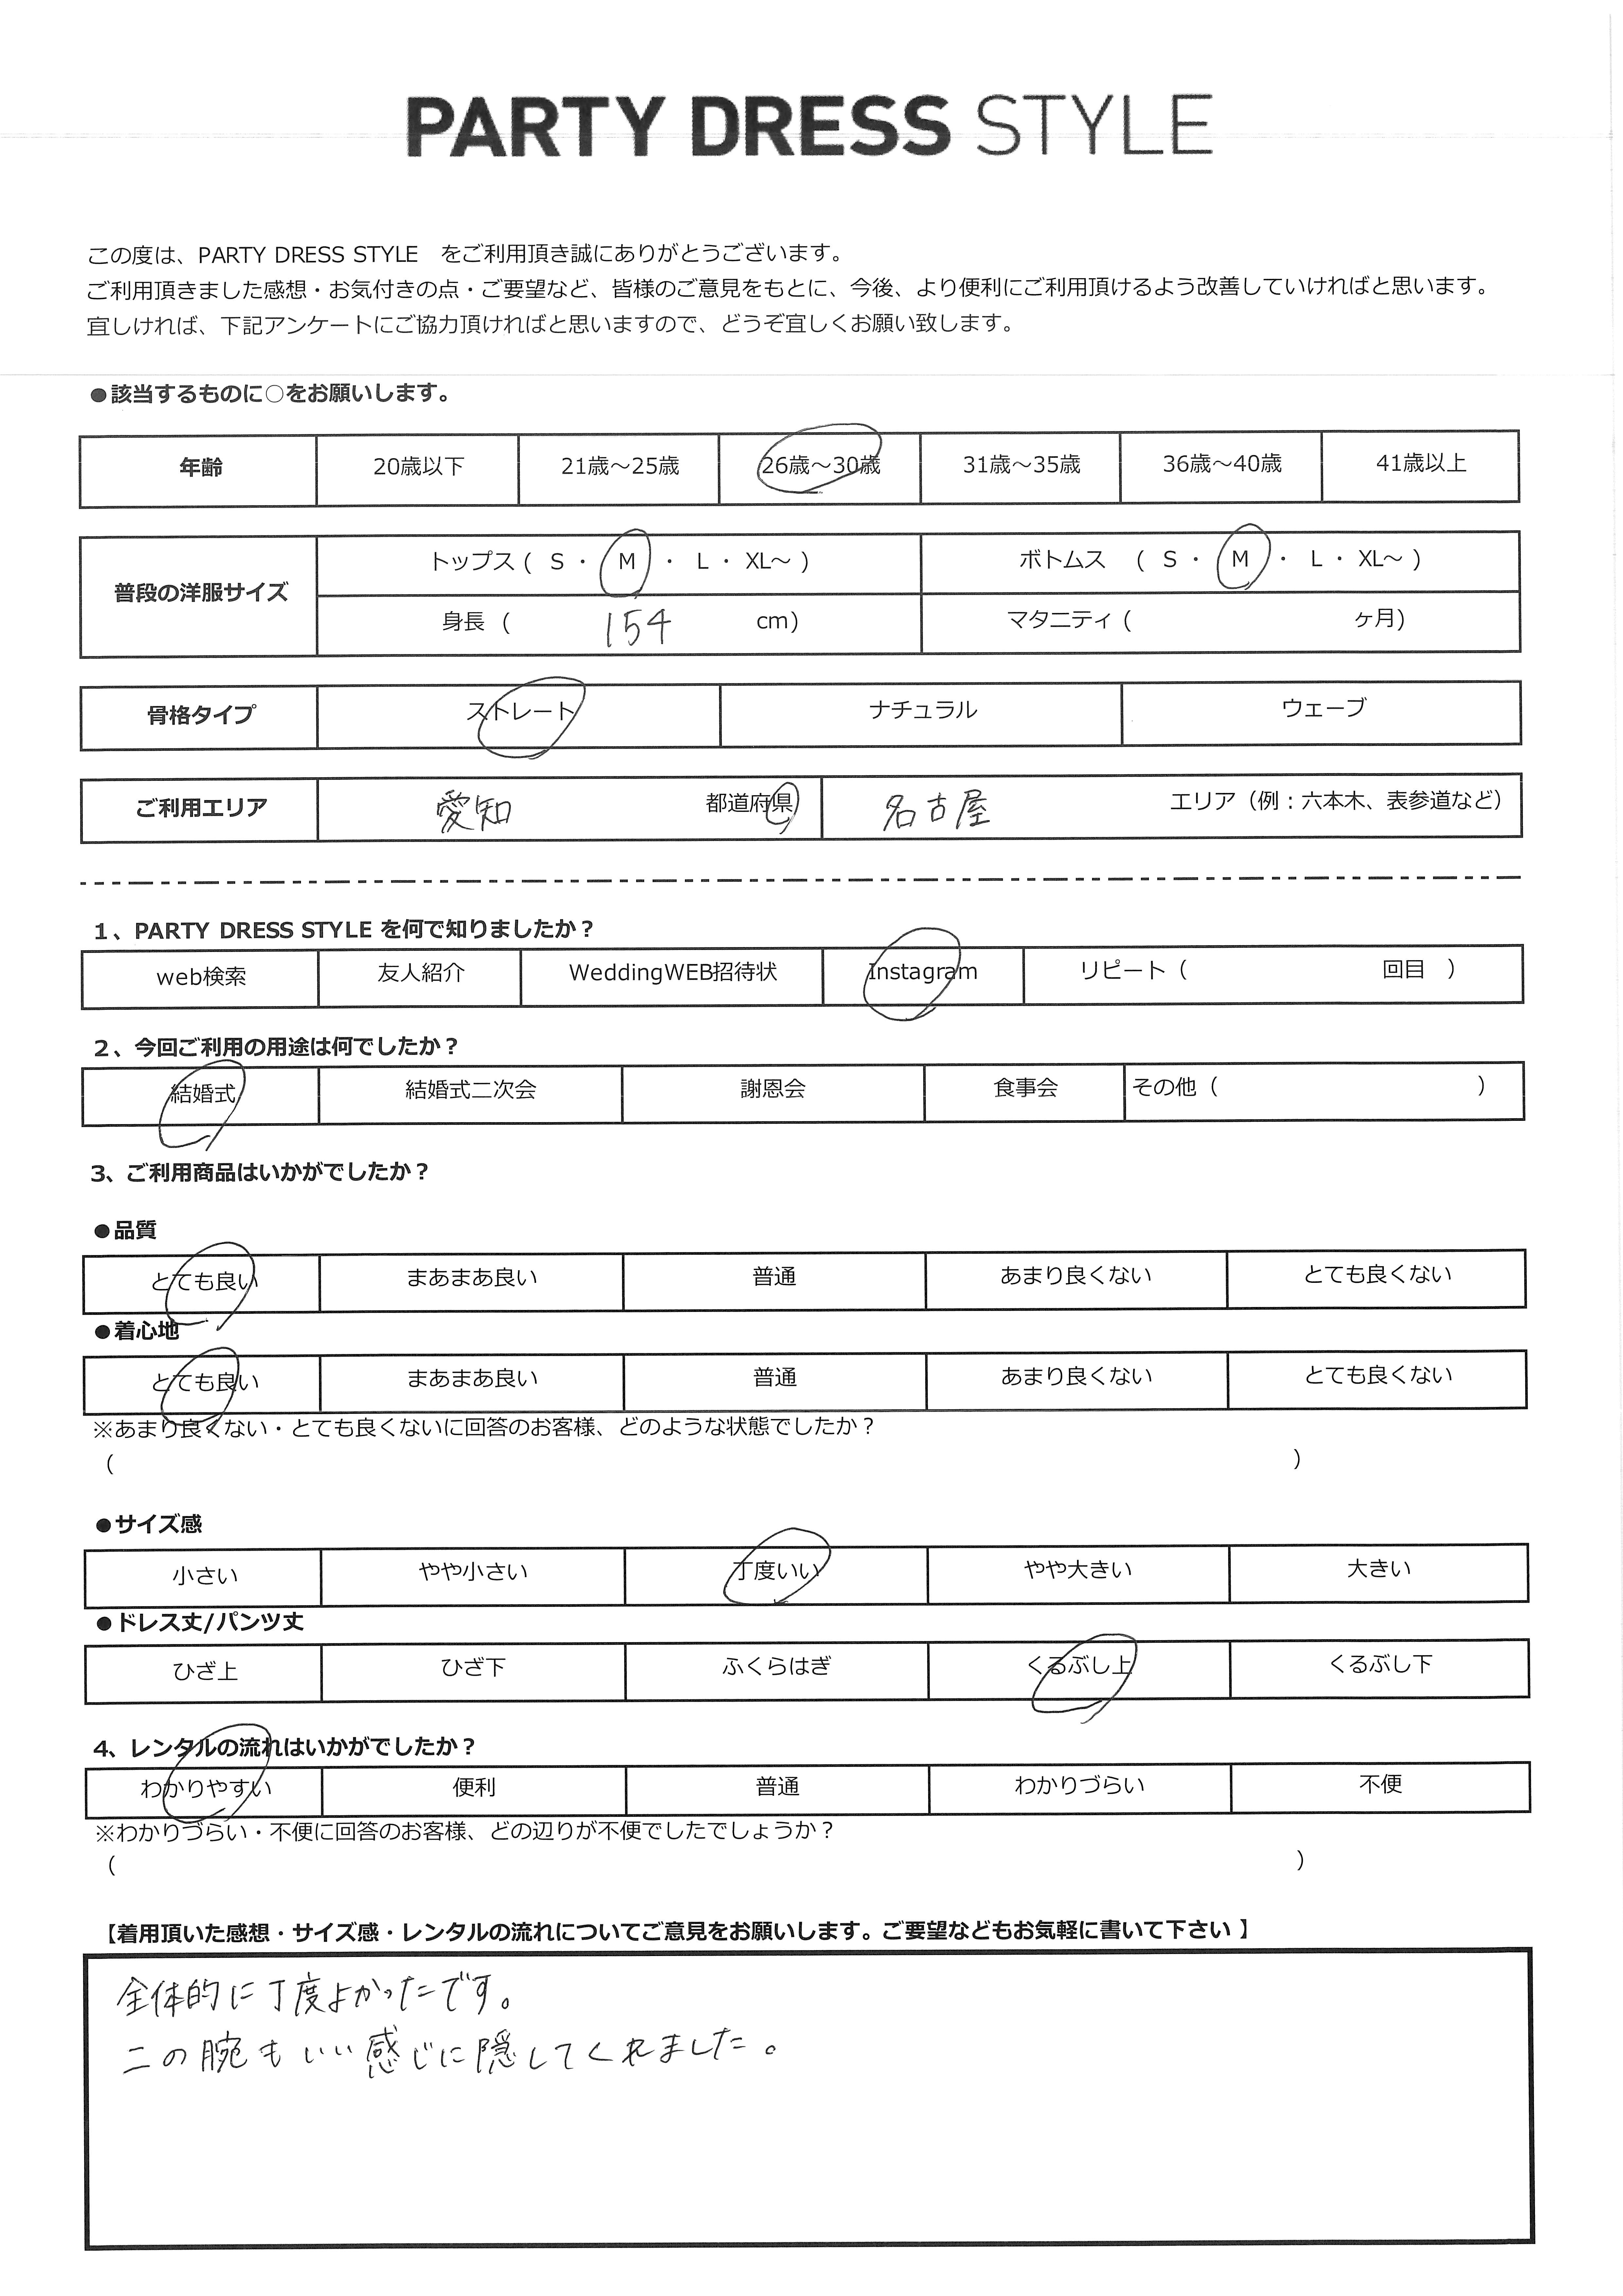 PARTY DRESS STYLE
この度は、PARTY DRESS STYLE をご利用頂き誠にありがとうございます。
ご利用頂きました感想・お気付きの点・ご要望など、皆様のご意見をもとに、今後、より便利にご利用頂けるよう改善していければと思います。
宜しければ、下記アンケートにご協力頂ければと思いますので、どうぞ宜しくお願い致します。
●該当するものに○をお願いします。
年齢 20歳以下 21歳～25歳 26歳～30歳 31歳～35歳 36歳～40歳 41歳以上
普段の洋服サイズ
トップス ( S ・ M ・ L ・ XL～ ) ボトムス ( S ・ M ・ L ・ XL～ )
身長 ( 154 cm) マタニティ ( ヶ月)
骨格タイプ ストレート ナチュラル ウェーブ
ご利用エリア 愛知 都道府県 名古屋 エリア（例：六本木、表参道など）
1、PARTY DRESS STYLE を何で知りましたか？
web検索 友人紹介 WeddingWEB招待状 Instagram リピート（ 回目 ）
2、今回ご利用の用途は何でしたか？
結婚式 結婚式二次会 謝恩会 食事会 その他（ ）
3、ご利用商品はいかがでしたか？
●品質
とても良い まあまあ良い 普通 あまり良くない とても良くない
●着心地
とても良い まあまあ良い 普通 あまり良くない とても良くない
※あまり良くない・とても良くないに回答のお客様、どのような状態でしたか？
（ ）
●サイズ感
小さい やや小さい 丁度いい やや大きい 大きい
●ドレス丈/パンツ丈
ひざ上 ひざ下 ふくらはぎ くるぶし上 くるぶし下
4、レンタルの流れはいかがでしたか？
わかりやすい 便利 普通 わかりづらい 不便
※わかりづらい・不便に回答のお客様、どの辺りが不便でしたでしょうか？
（ ）
【着用頂いた感想・サイズ感・レンタルの流れについてご意見をお願いします。ご要望などもお気軽に書いて下さい 】
全体的に丁度よかったです。
二の腕もいい感じに隠してくれました。